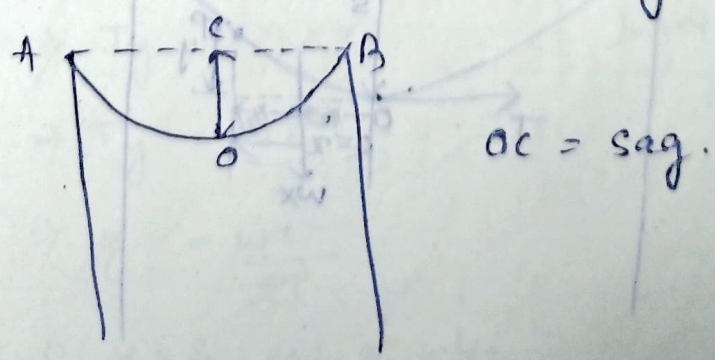 A C B
O
OC = Sag.